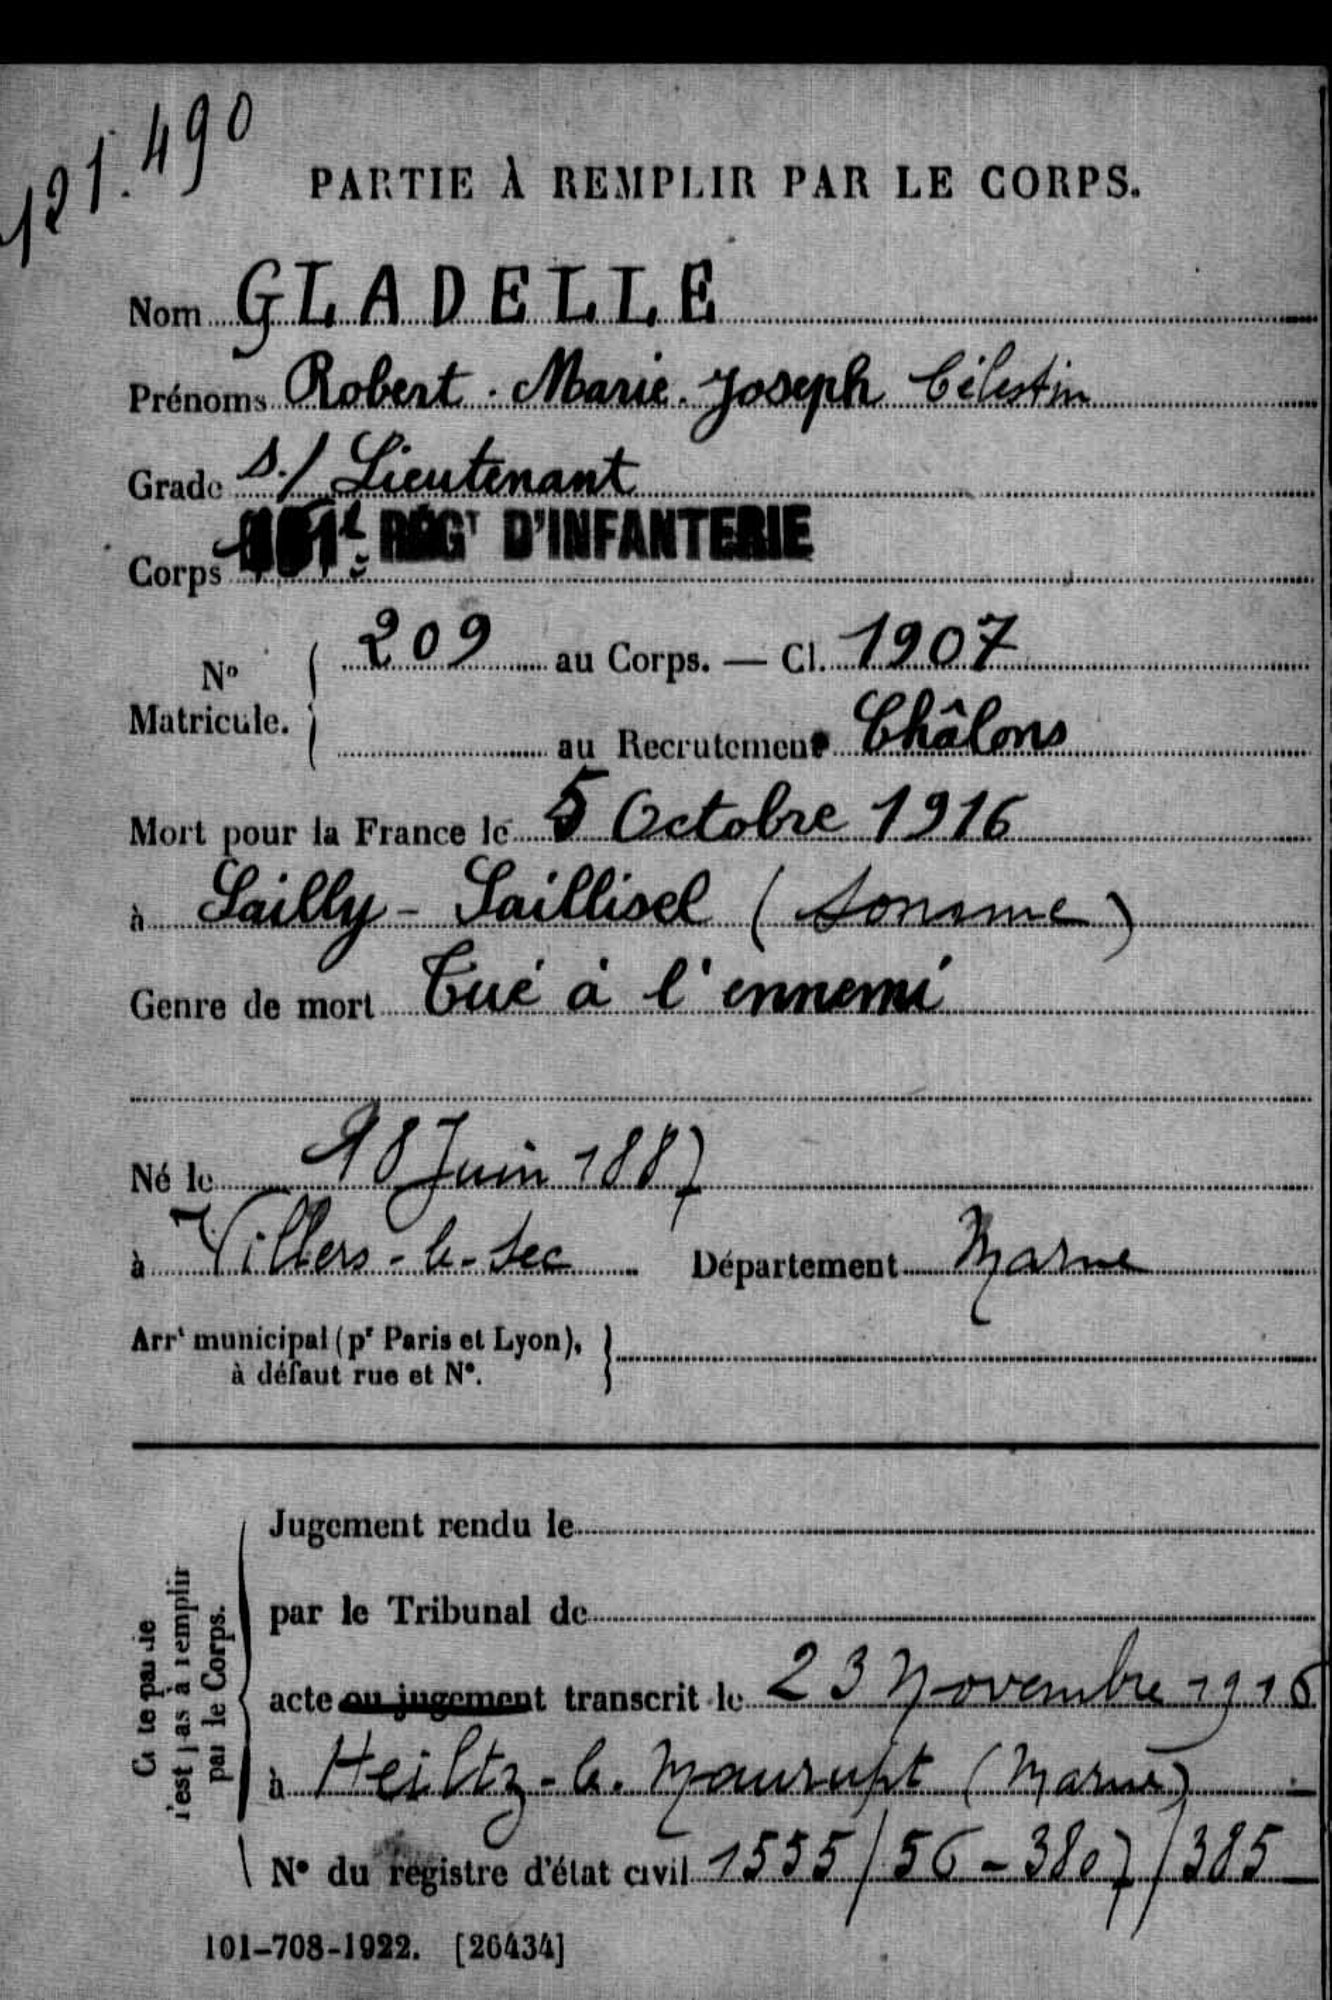 121.490
PARTIE À REMPLIR PAR LE CORPS.
Nom GLADELLE
Prénoms Robert. Marie. Joseph Célestin
Grade S./ Lieutenant
Corps RÉGT D'INFANTERIE
No Matricule. 209 au Corps. — Cl. 1907
au Recrutement Châlons
Mort pour la France le 5 Octobre 1916
à Sailly - Saillisel (Somme)
Genre de mort Tué à l'ennemi
Né le 18 Juin 1887
à Villers-le-Sec Département Marne
Arrt municipal (pr Paris et Lyon), à défaut rue et N°.
Jugement rendu le
par le Tribunal de
acte ou jugement transcrit le 23 Novembre 1916
à Heiltz-le-Maurupt (Marne)
N° du registre d'état civil 1555/56-3807/385
Cette partie n'est pas à remplir par le Corps.
101-708-1922. [26434]